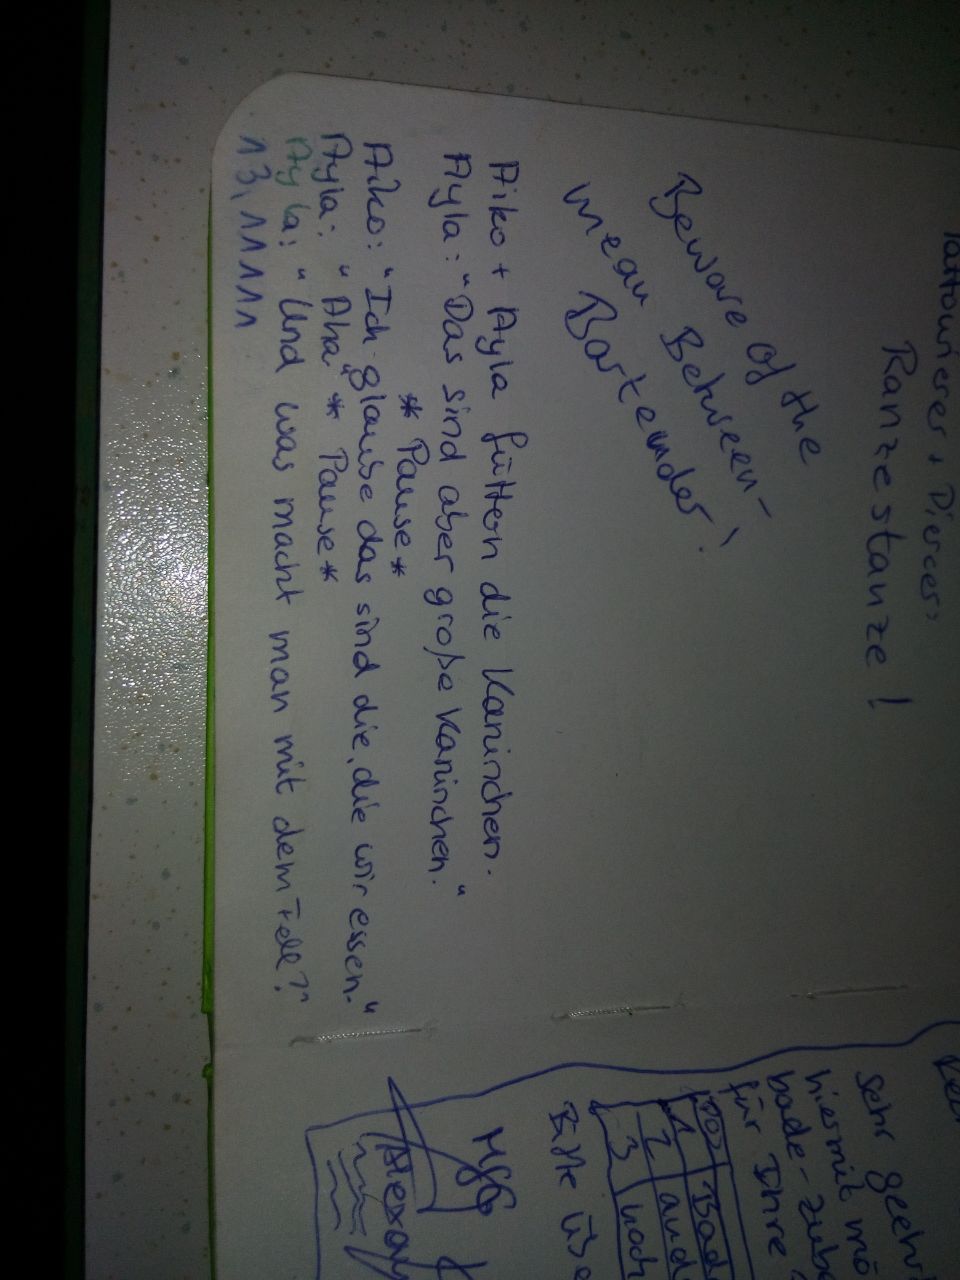 Tattowierer + Piercer:
Ranzestanze!
Beware of the
mean Between-
Bartender!
Aiko + Ayla füttern die Kaninchen.
Ayla: "Das sind aber große Kaninchen."
* Pause *
Aiko: "Ich glaube das sind die, die wir essen."
Ayla: "Aha" * Pause *
Ayla: "Und was macht man mit dem Fell?"
13,11111
Sehr geehr
hiermit mö
bade-zube
für Ihre
Pos Bad
1
2 and
3 und
Bitte übe
MfG